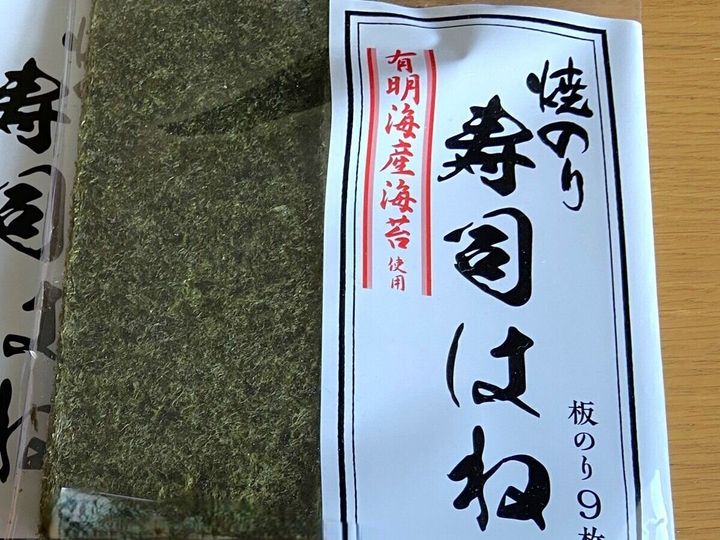 焼のり
寿司はね
板のり9枚
有明海産海苔使用
寿司はね